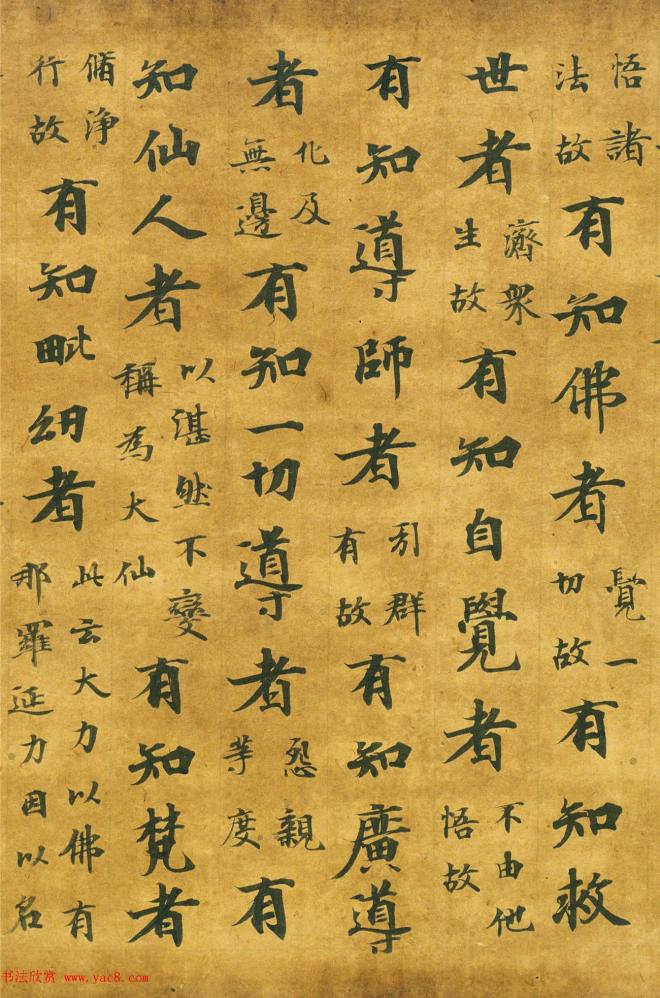 悟諸法故有知佛者覺一切故有知救
世者濟衆生故有知自覺者不由他悟故
有知導師者引群有故有知廣導
者化及無邊有知一切導者怨親等度有
知仙人者以湛然不變稱為大仙有知梵者
脩淨行故有知毗紐者此云大力以佛有那羅延力因以名
书法欣赏 www.yac8.com